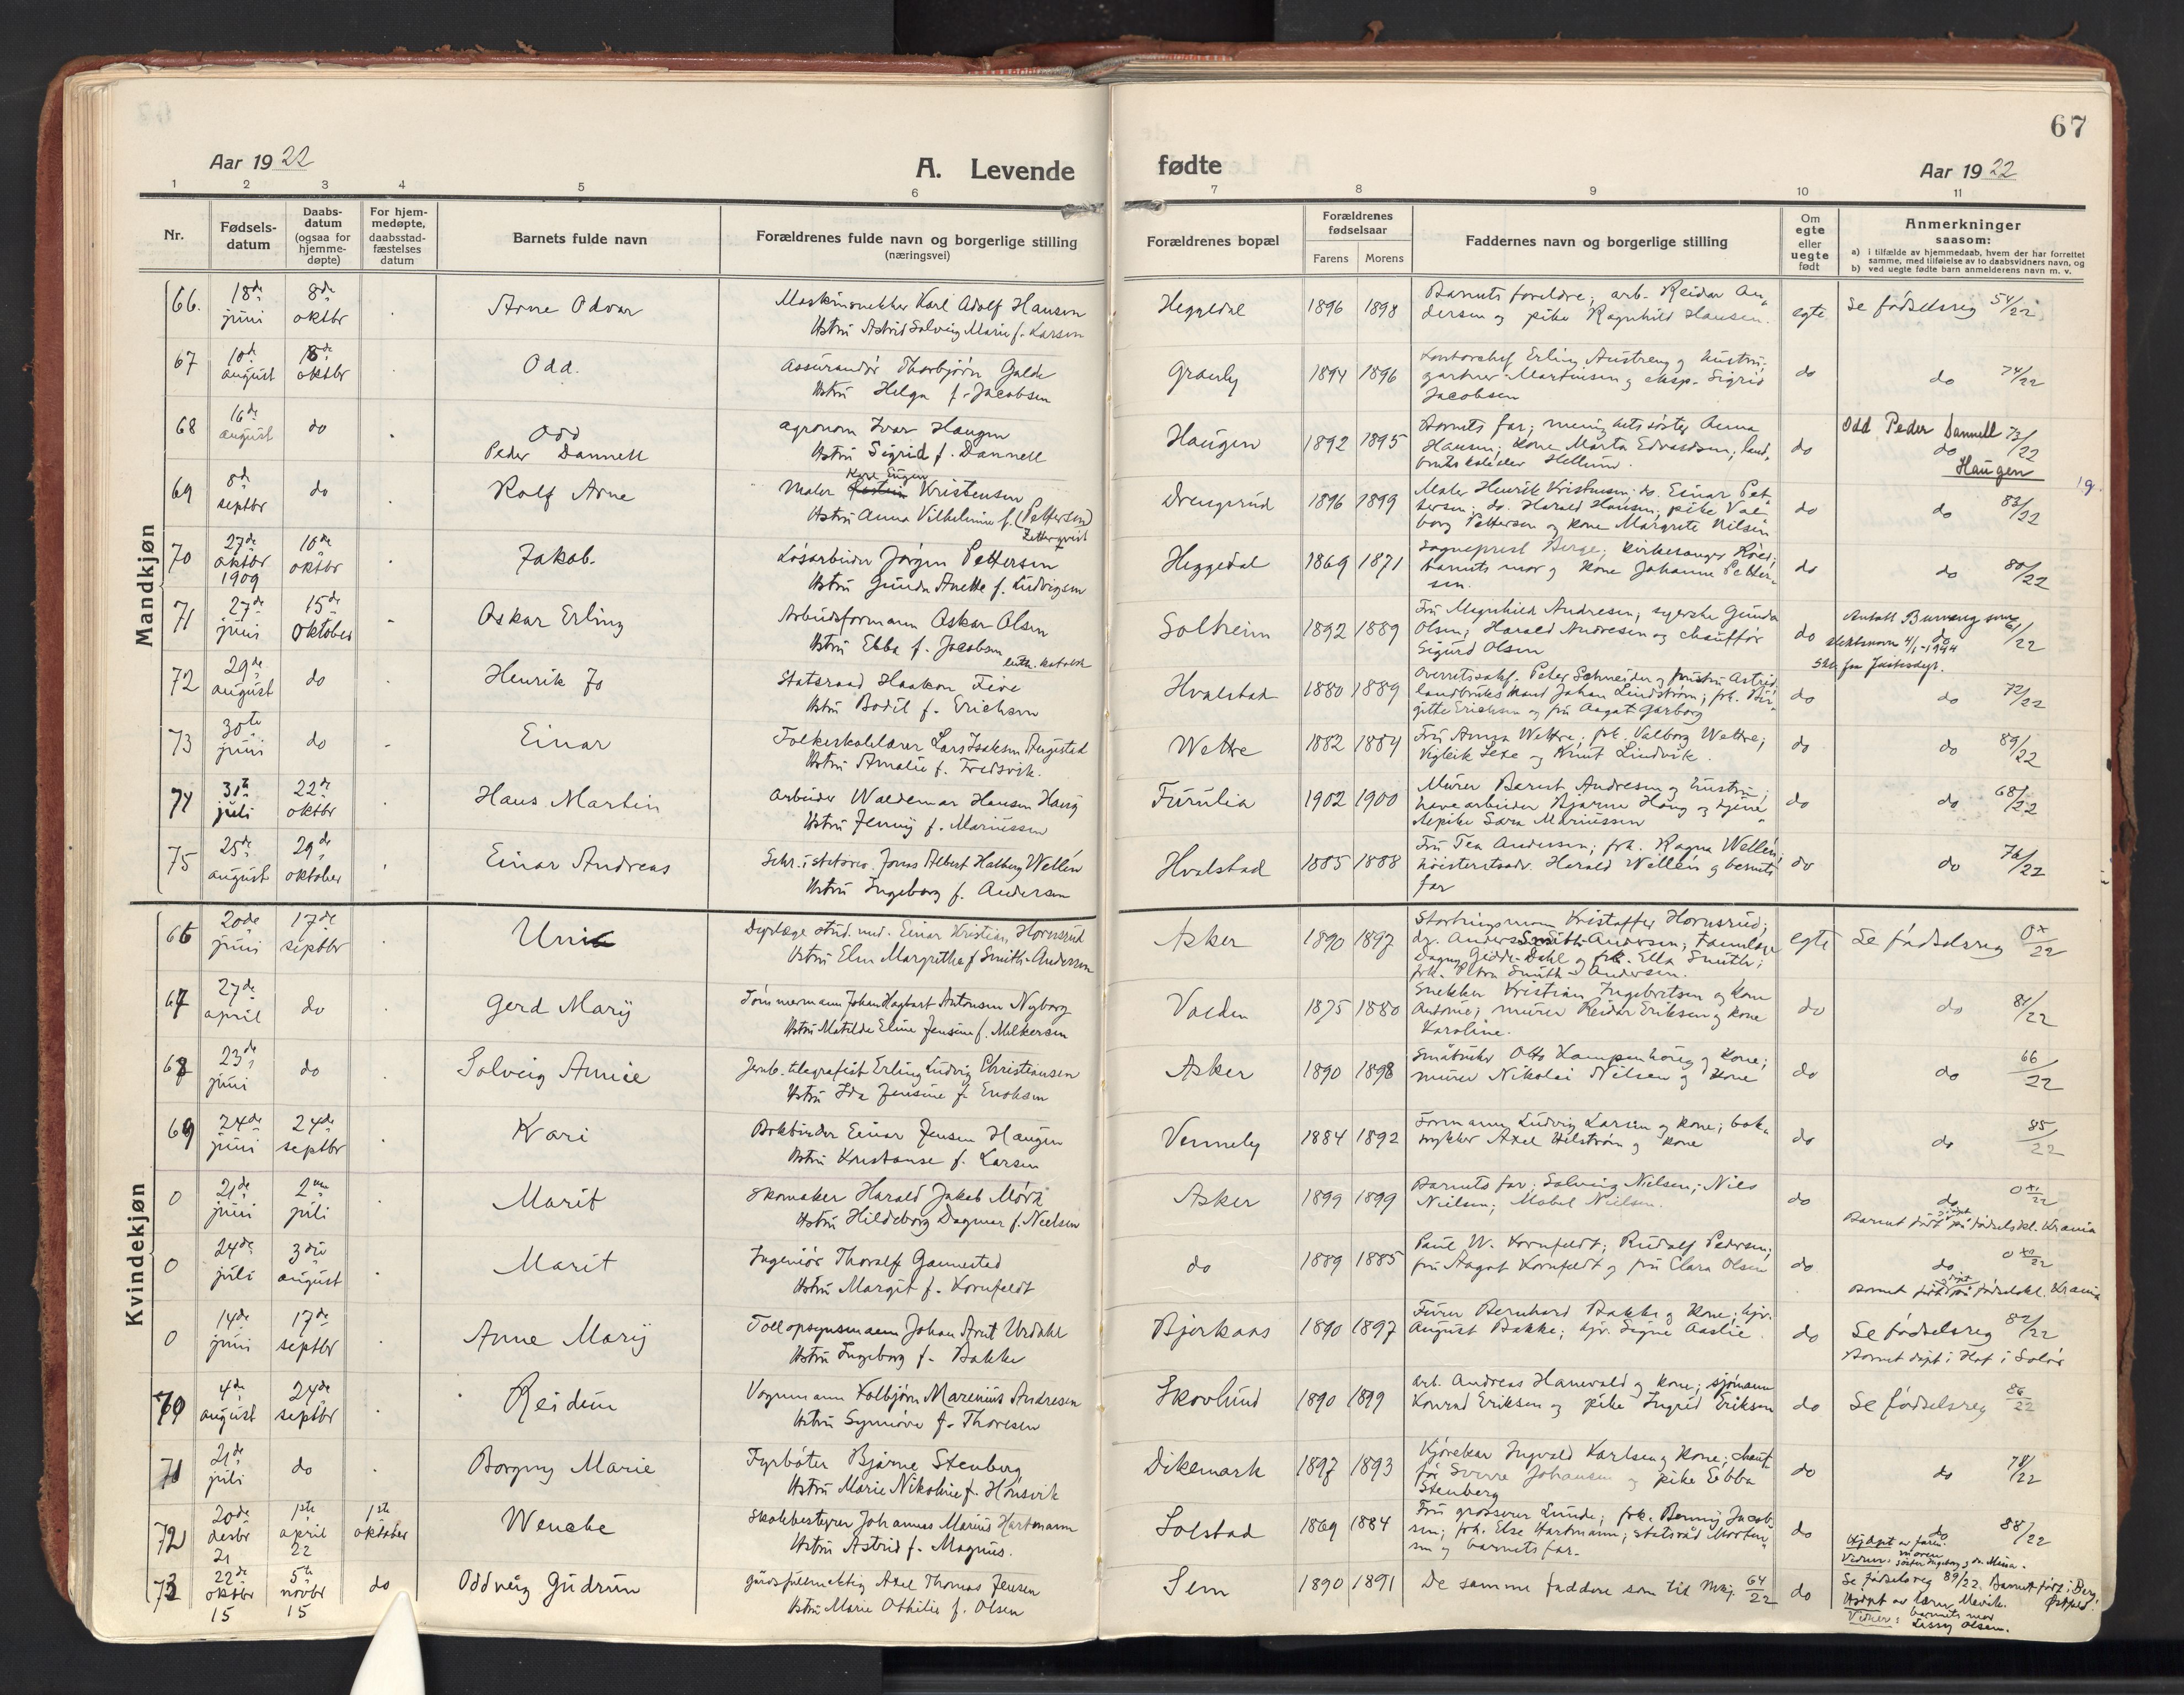 67
Aar 1922
A. Levende
fødte
Aar 1922
1 2 3 4 5 6 7 8 9 10 11
Nr.
Fødsels-
datum
Daabs-
datum
(ogsaa for
hjemme-
døpte)
For hjem-
medøpte,
daabsstad-
fæstelses
datum
Barnets fulde navn
Forældrenes fulde navn og borgerlige stilling
(næringsvei)
Forældrenes bopæl
Forældrenes
fødselsaar
Farens Morens
Faddernes navn og borgerlige stilling
Om
egte
eller
uegte
født
Anmerkninger
saasom:
a) i tilfælde av hjemmedaab, hvem der har forrettet
samme, med tilføielse av to daabsvidners navn, og
b) ved uegte fødte barn anmelderens navn m. v.
Mandkjøn
66. 18de juni 8de oktbr Arne Odvar
Maskinsnekker Karl Adolf Hansen
Hstru Astrid Solveig Marie f. Larsen
Heggedal 1896 1898
Barnets foreldre; arb. Reidar An-
dersen og pike Ragnhild Hansen.
egte Se fødselsreg 54/22
67 10de august 8de oktbr Odd.
Assurandør Thorbjørn Galde
Hstru Helga f. Jacobsen
1894 1896
Kontorchef Erling Austreng og hustru;
gartner Martinsen og eksp. Sigrid
Jacobsen
do do 74/22
68 16de august do Odd
Peder Dannell
Agronom Ivar Haugen
Hstru Sigrid f. Dannell
Haugen 1892 1895
Barnets far; menighetssøster Anna
Hansen; kone Marta Edvardsen; land-
Hellum.
do Odd Peder Dannell 73/22
do
Haugen
69 8de septbr do Rolf Arne
Maler Kristensen
Hstru Anna Vilhelmine f. (Pettersen)
Zetterqvist
Drengsrud 1896 1899
Maler Henrik Kristensen; do. Einar Pet-
tersen; do. Harald Hansen; pike Val-
borg Pettersen og kone Margrete Nilsen
do do 83/22
70 27de oktbr 1909 10de oktbr Jakob.
Løsarbeider Jørgen Pettersen
Hstru Gunda Anette f. Ludvigsen
Heggedal 1869 1871
Sogneprest Berge; kirkesanger
barnets mor og kone Johanne Petter-
sen.
do do 80/22
71 27de juni 15de oktober Oskar Erling
Arbeidsformann Oskar Olsen
Hstru Ebba f. Jacobsen
Solheim 1892 1889
Fru Magnhild Andresen; syerske Gunda
Olsen; Harald Andresen og chauffør
Sigurd Olsen
do Antatt som 61/22
slektsnavn 4/1-1944
72 29de august do Henrik Jo
Statsraad Haakon Five
Hstru Bodil f. Erichsen
Hvalstad 1880 1889
Overretssakf. Peter Schneider og hustru Astrid;
landbruks Johan Lindstrøm; frk. Bir-
gitte Erichsen og fru Aagot Garborg
do do 72/22
73 30te juni do Einar
Folkeskolelærer Lars Isaksen Augestad
Hstru Amalie f. Fredsvik.
Wettre 1882 1884
Fru Anna Wettre; frk. Valborg Wettre;
Vigleik Sexe og Knut Lindvik.
do do 89/22
74 31te juli 22de oktbr Hans Martin
Arbeider Waldemar Hansen Haug
Hstru Jenny f. Mariussen
Furulia 1902 1900
Murer Bernt Andresen og hustru;
havearbeider Bjarne Haug og tjene-
stepike Sara Mariussen
do do 68/22
75 25de august 29de oktober Einar Andreas
Sekr. i statsrev. Jonas Albert Halberg Wellén
Hstru Ingeborg f. Andersen
Hvalstad 1885 1888
Fru Tea Andersen; frk. Ragna Wellén;
høiesteretsadv. Harald Wellén og barnets
far
do do 76/22
Kvindekjøn
66 20de juni 17de septbr Uni
Dyrlæge stud. med. Einar Kristian Hornsrud
Hstru Elsa Margrethe f. Smith-Andersen
Asker 1890 1897
Stortingsmann Kristoffer Hornsrud;
dr. Anders Smith-Andersen; tannlæge
Dagny Gedde-Dahl og frk. Ella Smith;
frk. Petra Smith-Andersen.
egte Se fødselsreg 0x/22
67 27de april do Gerd Mary
Tømmermann Johan Hagbart Antonsen Nyborg
Hstru Matilde Eline Jensine f. Melkersen
Vaeden 1875 1880
Snekker Kristian Ingebretsen og kone
Antonie; murer Reidar Eriksen og kone
Karoline.
do do 81/22
68 23de juni do Solveig Annie
Jernb.telegrafist Erling Ludvig Christiansen
Hstru Ida Jensine f. Enoksen
Asker 1890 1898
Småbruker Otto Kampenhaug og kone;
murer Nikolai Nilsen og kone
do do 66/22
69 24de juni 24de septbr Kari
Bokbinder Einar Jensen Haugen
Hstru Konstanse f. Larsen
Venneby 1884 1892
Formann Ludvig Larsen og kone; bok-
trykker Axel Hilstrøm og kone
do do 85/22
0 21de juni 2den juli Marit
Skomaker Harald Jakob Mørk
Hstru Hildeborg Dagmar f. Nielsen
Asker 1899 1899
Barnets far; Solveig Nilsen; Nils
Nielsen; Mabel Nielsen.
do do 0x/22
Barnet født på fødselskl. Krania
0 24de juli 3die august Marit
Ingeniør Thoralf Gamnested
Hstru Margit f. Kornfeldt
do 1889 1885
Paul W. Kornfeldt; Rudolf Pedersen;
fru Aagot Kornfeldt og fru Clara Olsen
do do 0xx/22
Barnet født på fødselskl. Krania
0 14de juni 17de septbr Anne Mary
Tollopsynsmann Johan Arnt Urdahl
Hstru Ingeborg f. Bakke
Bjerkaas 1890 1897
Furer Bernhard Bakke og kone; hjv.
August Bakke; hjv. Signe Aaslie.
do Se fødselsreg 82/22
Barnet døpt i Hof i Solør
70 4de august 24de septbr Reidun
Vognmann Kolbjørn Marenius Andresen
Hstru Synnøve f. Thoresen
Skovlund 1890 1899
Arb. Andreas Hanevald og kone; sjømann
Konrad Eriksen og pike Ingrid Eriksen
do Se fødselsreg 86/22
71 21de juli do Borgny Marie
Fyrbøter Bjarne Stenberg
Hstru Marie Nikoline f. Hønsvik
Dikemark 1897 1893
Kjørekar Ingvald Karlsen og kone; chauf-
før Sverre Johansen og pike Ebba
Stenberg
do do 78/22
72 20de desbr 21 1ste april 22 1ste oktober Wenche
Skolebestyrer Johannes Marius Hartmann
Hstru Astrid f. Magnus.
Solstad 1869 1884
Fru grosserer Lunde; frk. Benny Jacob-
sen; frk. Else Hartmann; statsråd Morten-
sen og barnets far.
do do 88/22
Hjdøpt av faren.
Vidner: moren
73 22de oktbr 15 5te novbr 15 do Oddveig Gudrun
Gårdsfullmektig Axel Thomas Jensen
Hstru Marie Othilie f. Olsen
Sem 1890 1891
De samme faddere som til Mkj. 64/22
do Se fødselsreg 89/22. Barnet født i Berg
Østfold.
Vidner: barnets mor
Lissy Olsen.